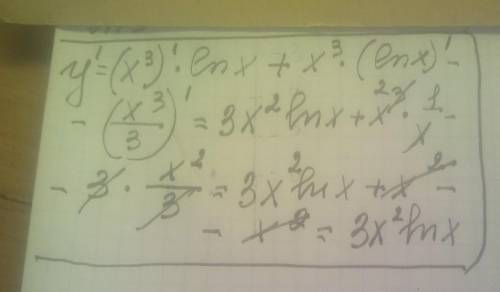 y' = (x³)' · ln x + x³ · (ln x)' -
- (x³/3)' = 3x² ln x + x³ ² · 1/x -
- 3 · x²/3 = 3x² ln x + x² -
- x² = 3x² ln x